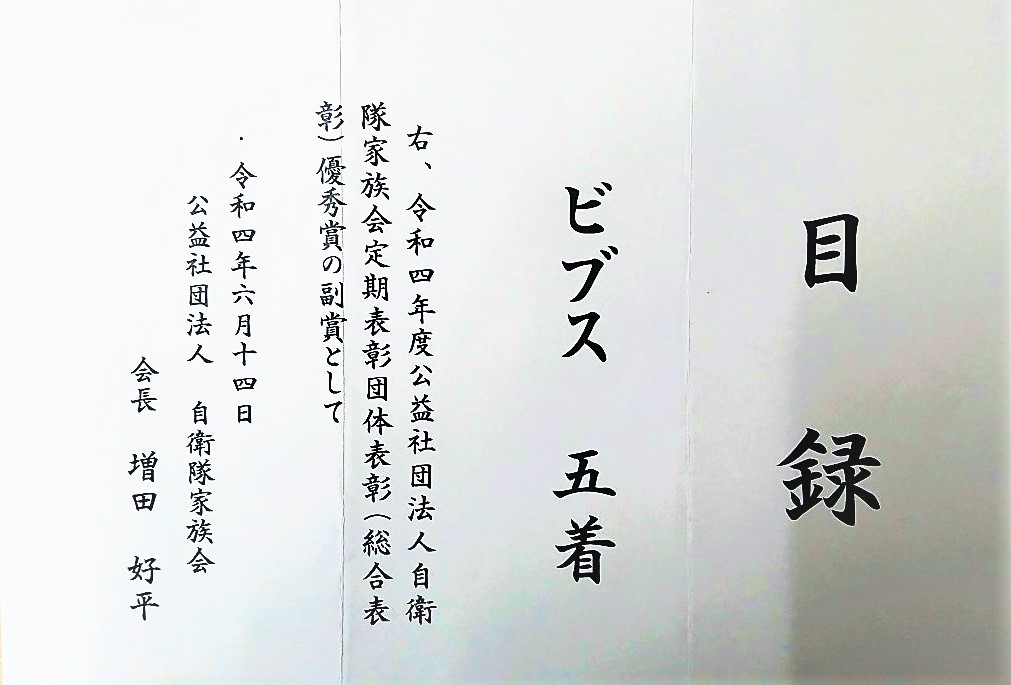 目録
ビブス 五着
右、令和四年度公益社団法人自衛
隊家族会定期表彰団体表彰(総合表
彰)優秀賞の副賞として
令和四年六月十四日
公益社団法人 自衛隊家族会
会長 増田 好平